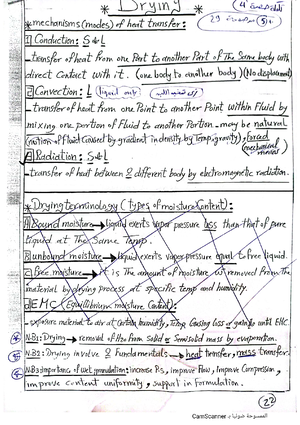 * Drying *
* mechanisms (modes) of heat transfer:
1 Conduction: S & L
- transfer of heat from one Part to another Part of The Same body with
direct Contact with it. (one body to another body) (No displacement)
2 Convection: L (liquid only)
- Transfer of heat from one Point to another Point within Fluid by
mixing one portion of Fluid to another Portion - may be natural
(motion of Fluid caused by gradient in density by Temp, gravity), forced
(mechanical means)
Radiation: S & L
- transfer of heat between 2 different body by electromagnetic radiation.
* Drying terminology (types of moisture Content):
A Bound moisture → liquid exerts vapor pressure less than that of pure
liquid at The Same Temp.
B unbound moisture → liquid exerts vapor pressure equal to free liquid.
C free moisture → it is The amount of moisture removed From The
material by drying process at specific temp and humidity.
EMC (Equilibrium moisture Content):
- exposure material to air at Certain humidity, Temp Causing loss or gain to until EMC
N.B1: Drying → removal of H2O from Solid or Semisolid mass by evaporation.
N.B2: Drying involve 2 Fundamentals → heat transfer, mass transfer.
N.B3: importance of wet granulation: increase Ps, improve Flow, improve Compression,
improve Content uniformity, support in formulation.
22
CamScanner